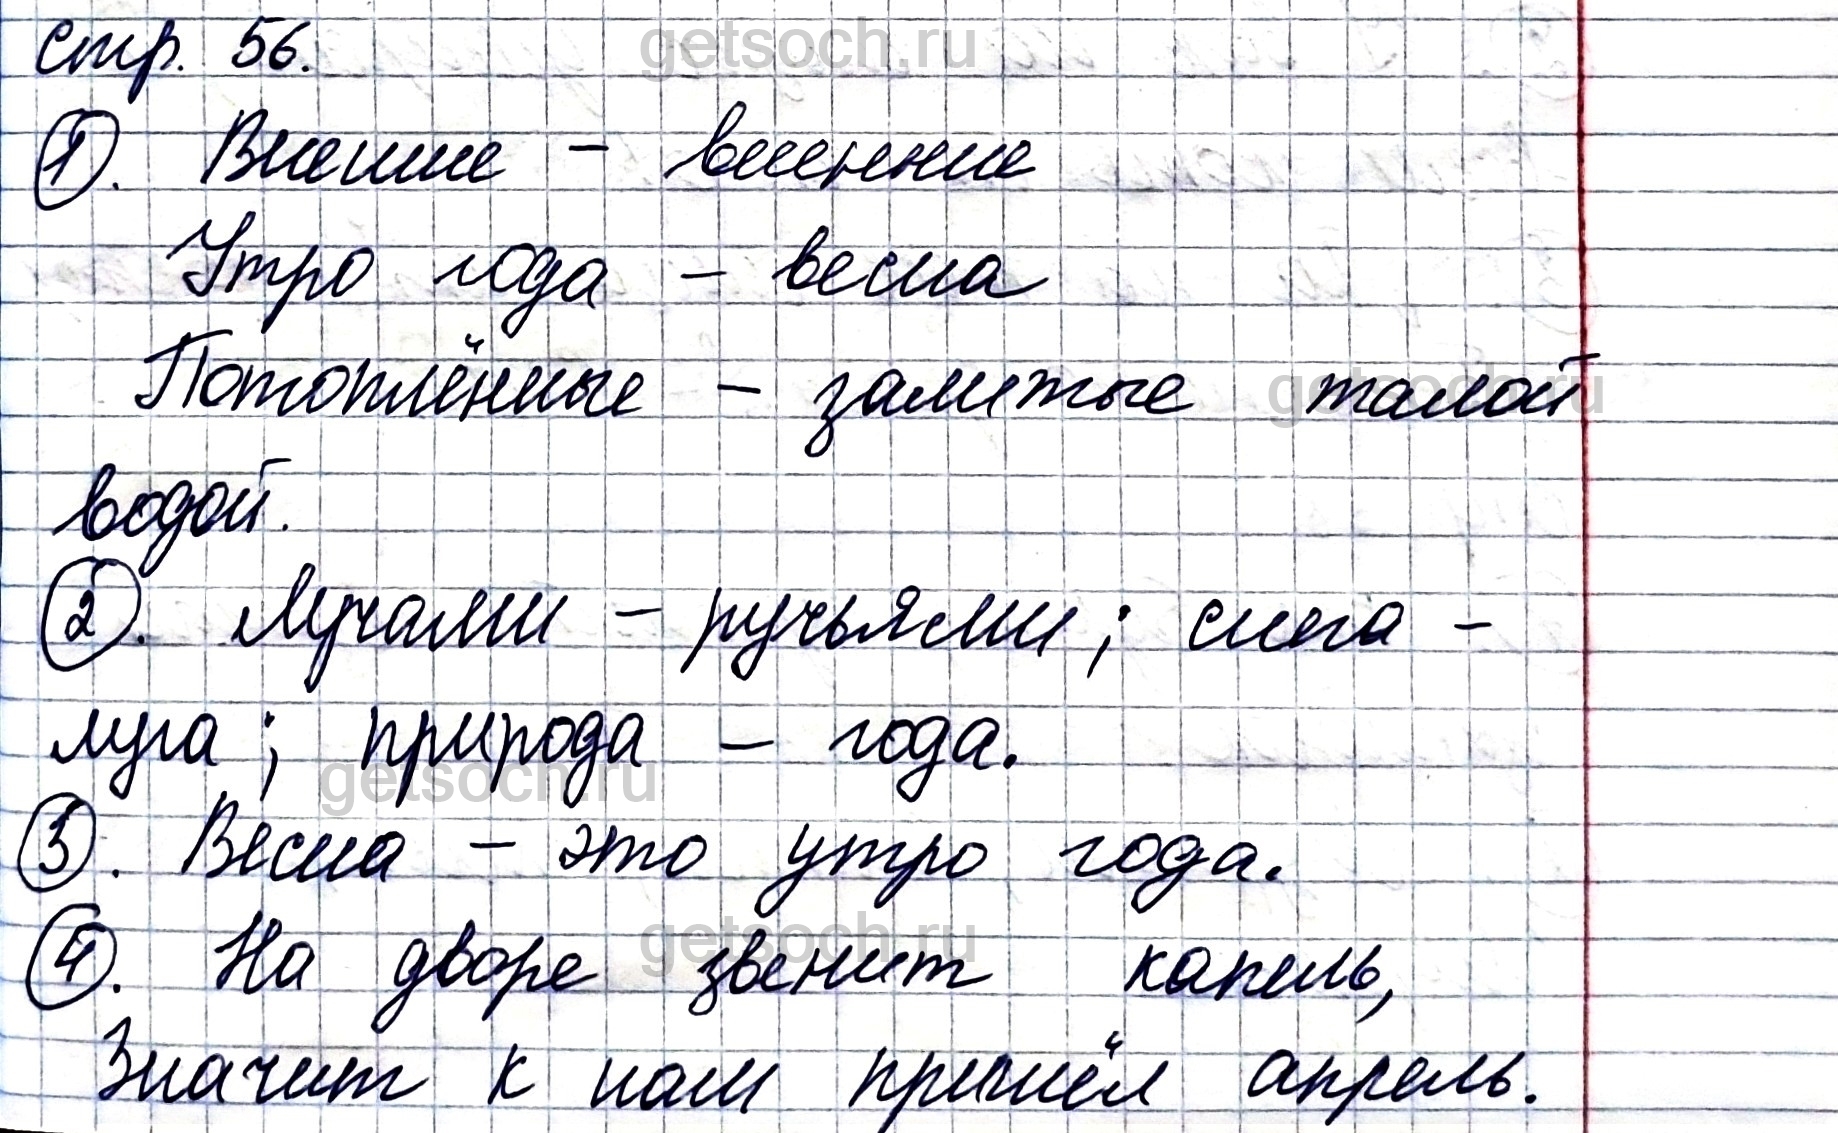 стр. 56.
getsoch.ru
1. Вешние - весенние
Утро года - весна
Потоплённые - залитые талой
getsoch.ru
водой.
2. Лучами - ручьями; снега -
луга; природа - года.
getsoch.ru
3. Весна - это утро года.
getsoch.ru
4. На дворе звенит капель,
Значит к нам пришёл апрель.